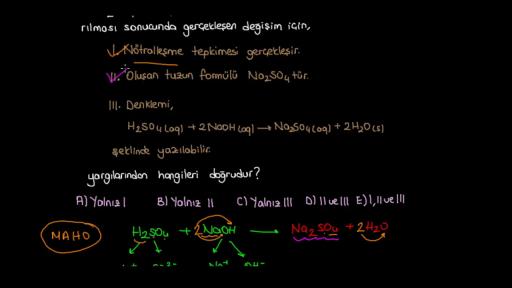 rılması sonucunda gerçekleşen değişim için,
I. Nötralleşme tepkimesi gerçekleşir.
II. Oluşan tuzun formülü Na₂SO₄ tür.
III. Denklemi,
H₂SO₄(aq) + 2NaOH(aq) → Na₂SO₄(aq) + 2H₂O(s)
şeklinde yazılabilir.
yargılarından hangileri doğrudur?
A) Yalnız I B) Yalnız II C) Yalnız III D) II ve III E) I, II ve III
MAHO H₂SO₄ + 2NaOH → Na₂SO₄ + 2H₂O